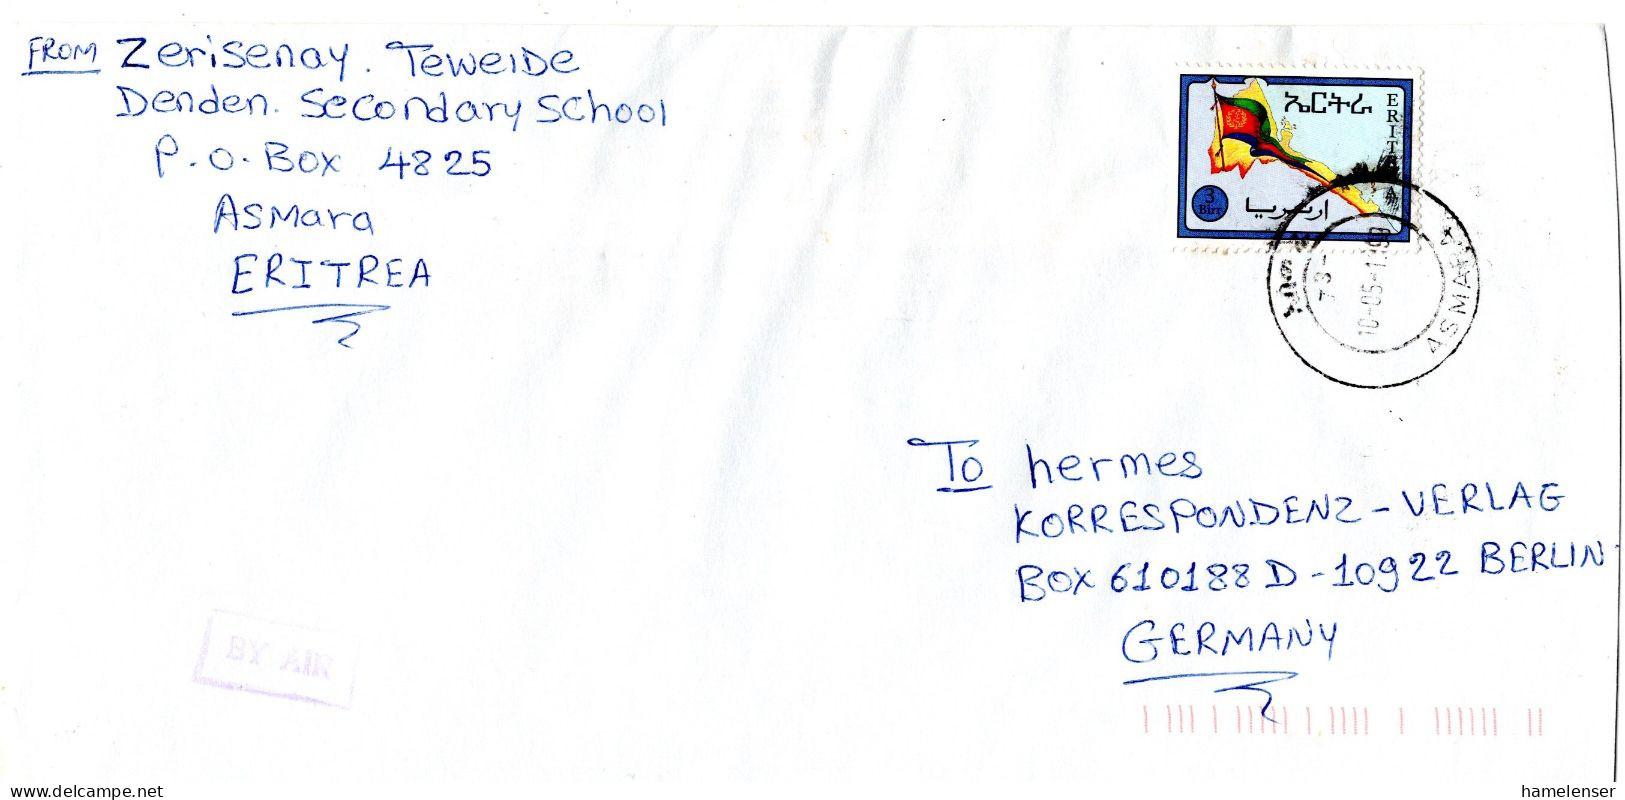 FROM Zerisenay. TeweIDe
Denden. Secondary School
P.O.Box 4825
ASMara
ERITREA
ኤርትራ
ERITREA
3
Birr
ارتريا
ASMARA
To hermes
KORRESPONDENZ-VERLAG
BOX 610188 D-10922 BERLIN
GERMANY
BY AIR
www.delcampe.net
hamelenser